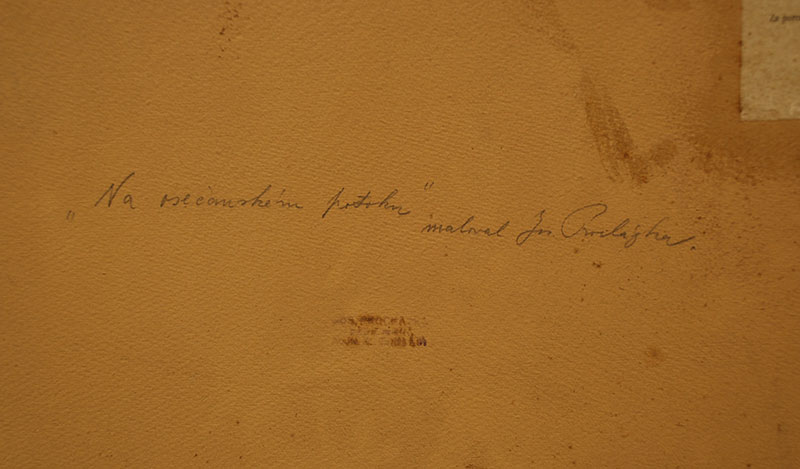 „Na osečanském potoku“
maloval Jos. Procházka.